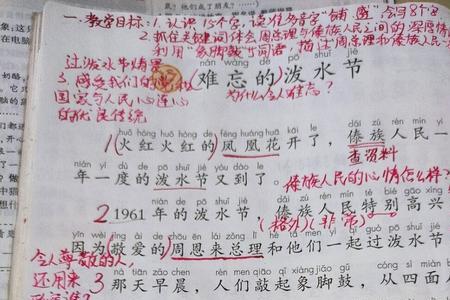 一、教学目标：1. 认识15个字，读准多音字"铺、盛"，会写8个字
2. 抓住关键词体会周总理与傣族人民之间的深厚情
利用"象脚鼓"等词语，描述周总理和傣族人民一
过泼水节情景
3. 感受我们的党和
国家与人民心连心
的优良传统
nán wàng de pō shuǐ jié
难忘的泼水节
为什么令人难忘？
huǒ hóng huǒ hóng de fèng huáng huā kāi le dǎi zú rén mín yì
1 火红火红的凤凰花开了，傣族人民一
查资料
nián yí dù de pō shuǐ jié yòu dào le
年一度的泼水节又到了。
傣族人民的心情怎么样？
nián de pō shuǐ jié dǎi zú rén mín tè bié gāo xìng
2 1961年的泼水节，傣族人民特别高兴
(格外)(非常)
yīn wèi jìng ài de zhōu ēn lái zǒng lǐ hé tā men yì qǐ guò pō shuǐ jié
因为敬爱的周恩来总理和他们一起过泼水节
令人尊敬的人
还用来
nà tiān zǎo chén rén men qiāo qǐ xiàng jiǎo gǔ cóng sì miàn
3 那天早晨，人们敲起象脚鼓，从四面